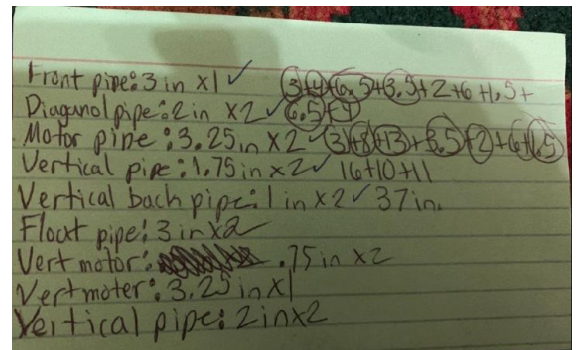 Front pipe: 3 in x1 ✓ 3+4+6.5+3.5+2+6+1.5+
Diaganol pipe: 2 in x2 ✓ 6.5+4
Motor pipe: 3.25 in x2 ✓ 3+8+13+3.5+2+6+1.5
Vertical pipe: 1.75 in x2 ✓ 16+10+11
Vertical back pipe: 1 in x2 ✓ 37 in.
Float pipe: 3 in x2
Vert motor: .75 in x2
Vert moter: 3.25 in x1
Vertical pipe: 2 in x2